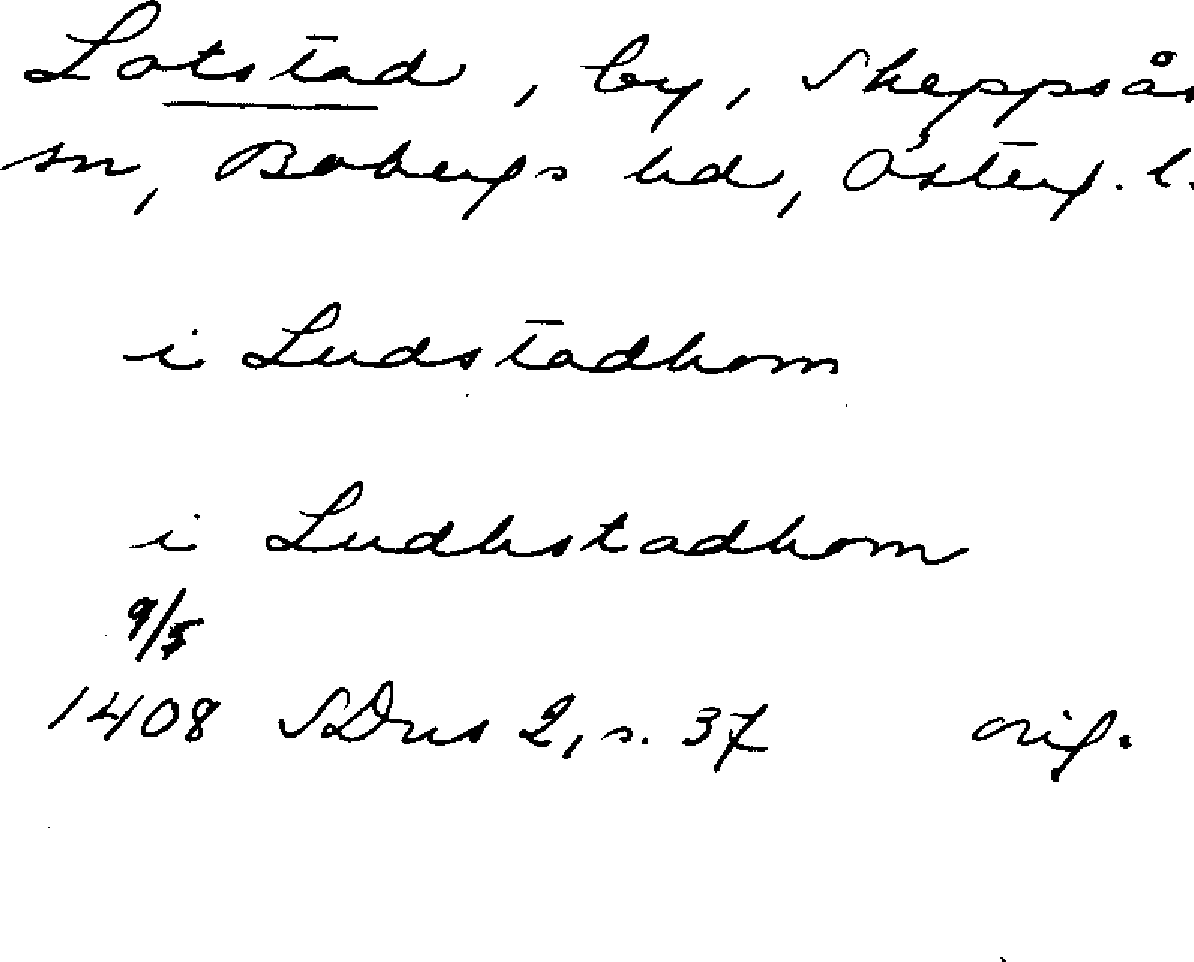 Lotstad, by, Skeppsås
sn, Bobergs hd, Österg. l.
i Ludstadhom
i Ludhstadhom
9/5
1408 SDns 2, s. 37 orig.